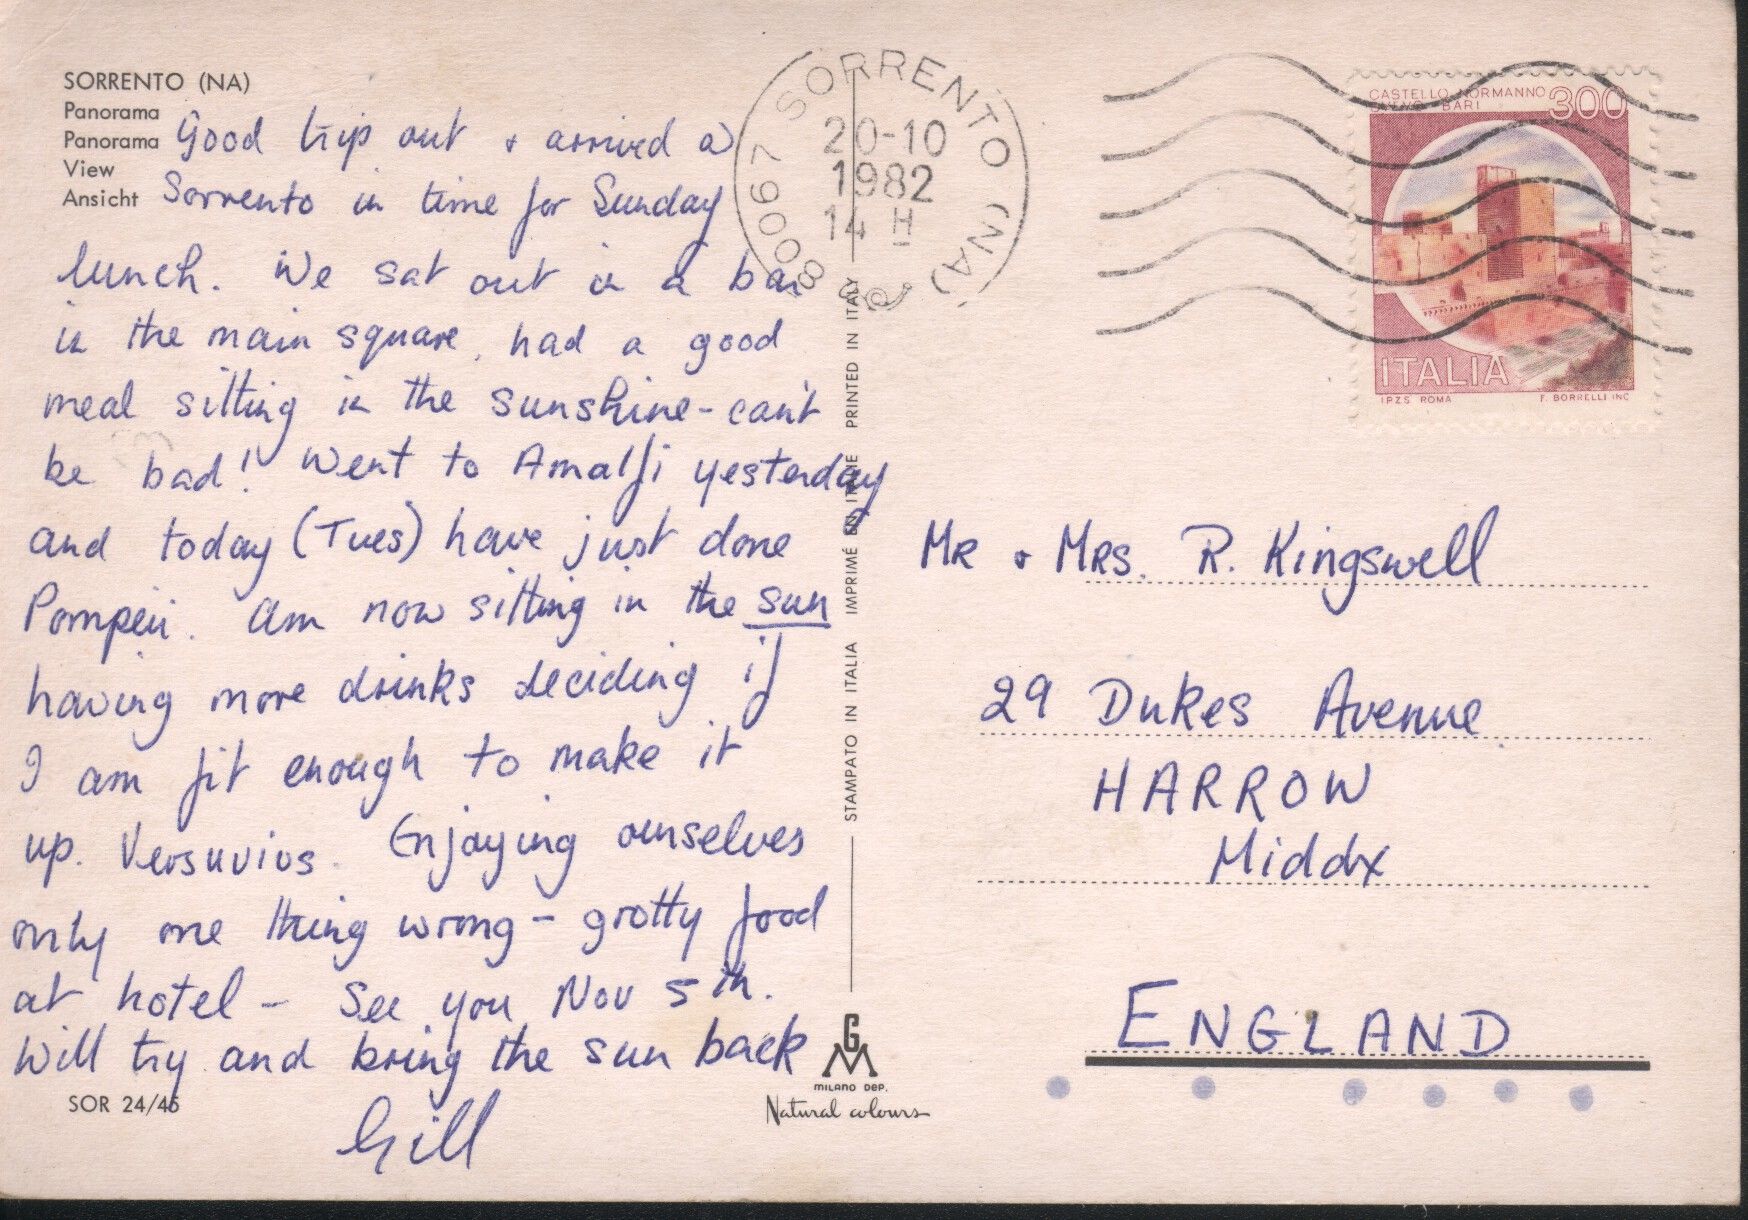 SORRENTO (NA)
Panorama
Panorama
View
Ansicht
Good trip out + arrived a
Sorrento in time for Sunday
lunch. We sat out in a bar
in the main square, had a good
meal sitting in the sunshine - can't
be bad! Went to Amalfi yesterday
and today (Tues) have just done
Pompeii. Am now sitting in the sun
having more drinks deciding if
I am fit enough to make it
up. Versuvius. Enjoying ourselves
only one thing wrong - grotty food
at hotel - See you Nov 5th.
Will try and bring the sun back
Gill
SOR 24/45
STAMPATO IN ITALIA IMPRIMÉ EN ITALIE PRINTED IN ITALY
GM
MILANO DEP.
Natural colours
80067 SORRENTO (NA)
20-10
1982
14 H
CASTELLO NORMANNO
SVEVO - BARI
300
ITALIA
I.P.Z.S. ROMA F. BORRELLI INC
Mr + Mrs. R. Kingswell
29 Dukes Avenue
HARROW
Middx
ENGLAND